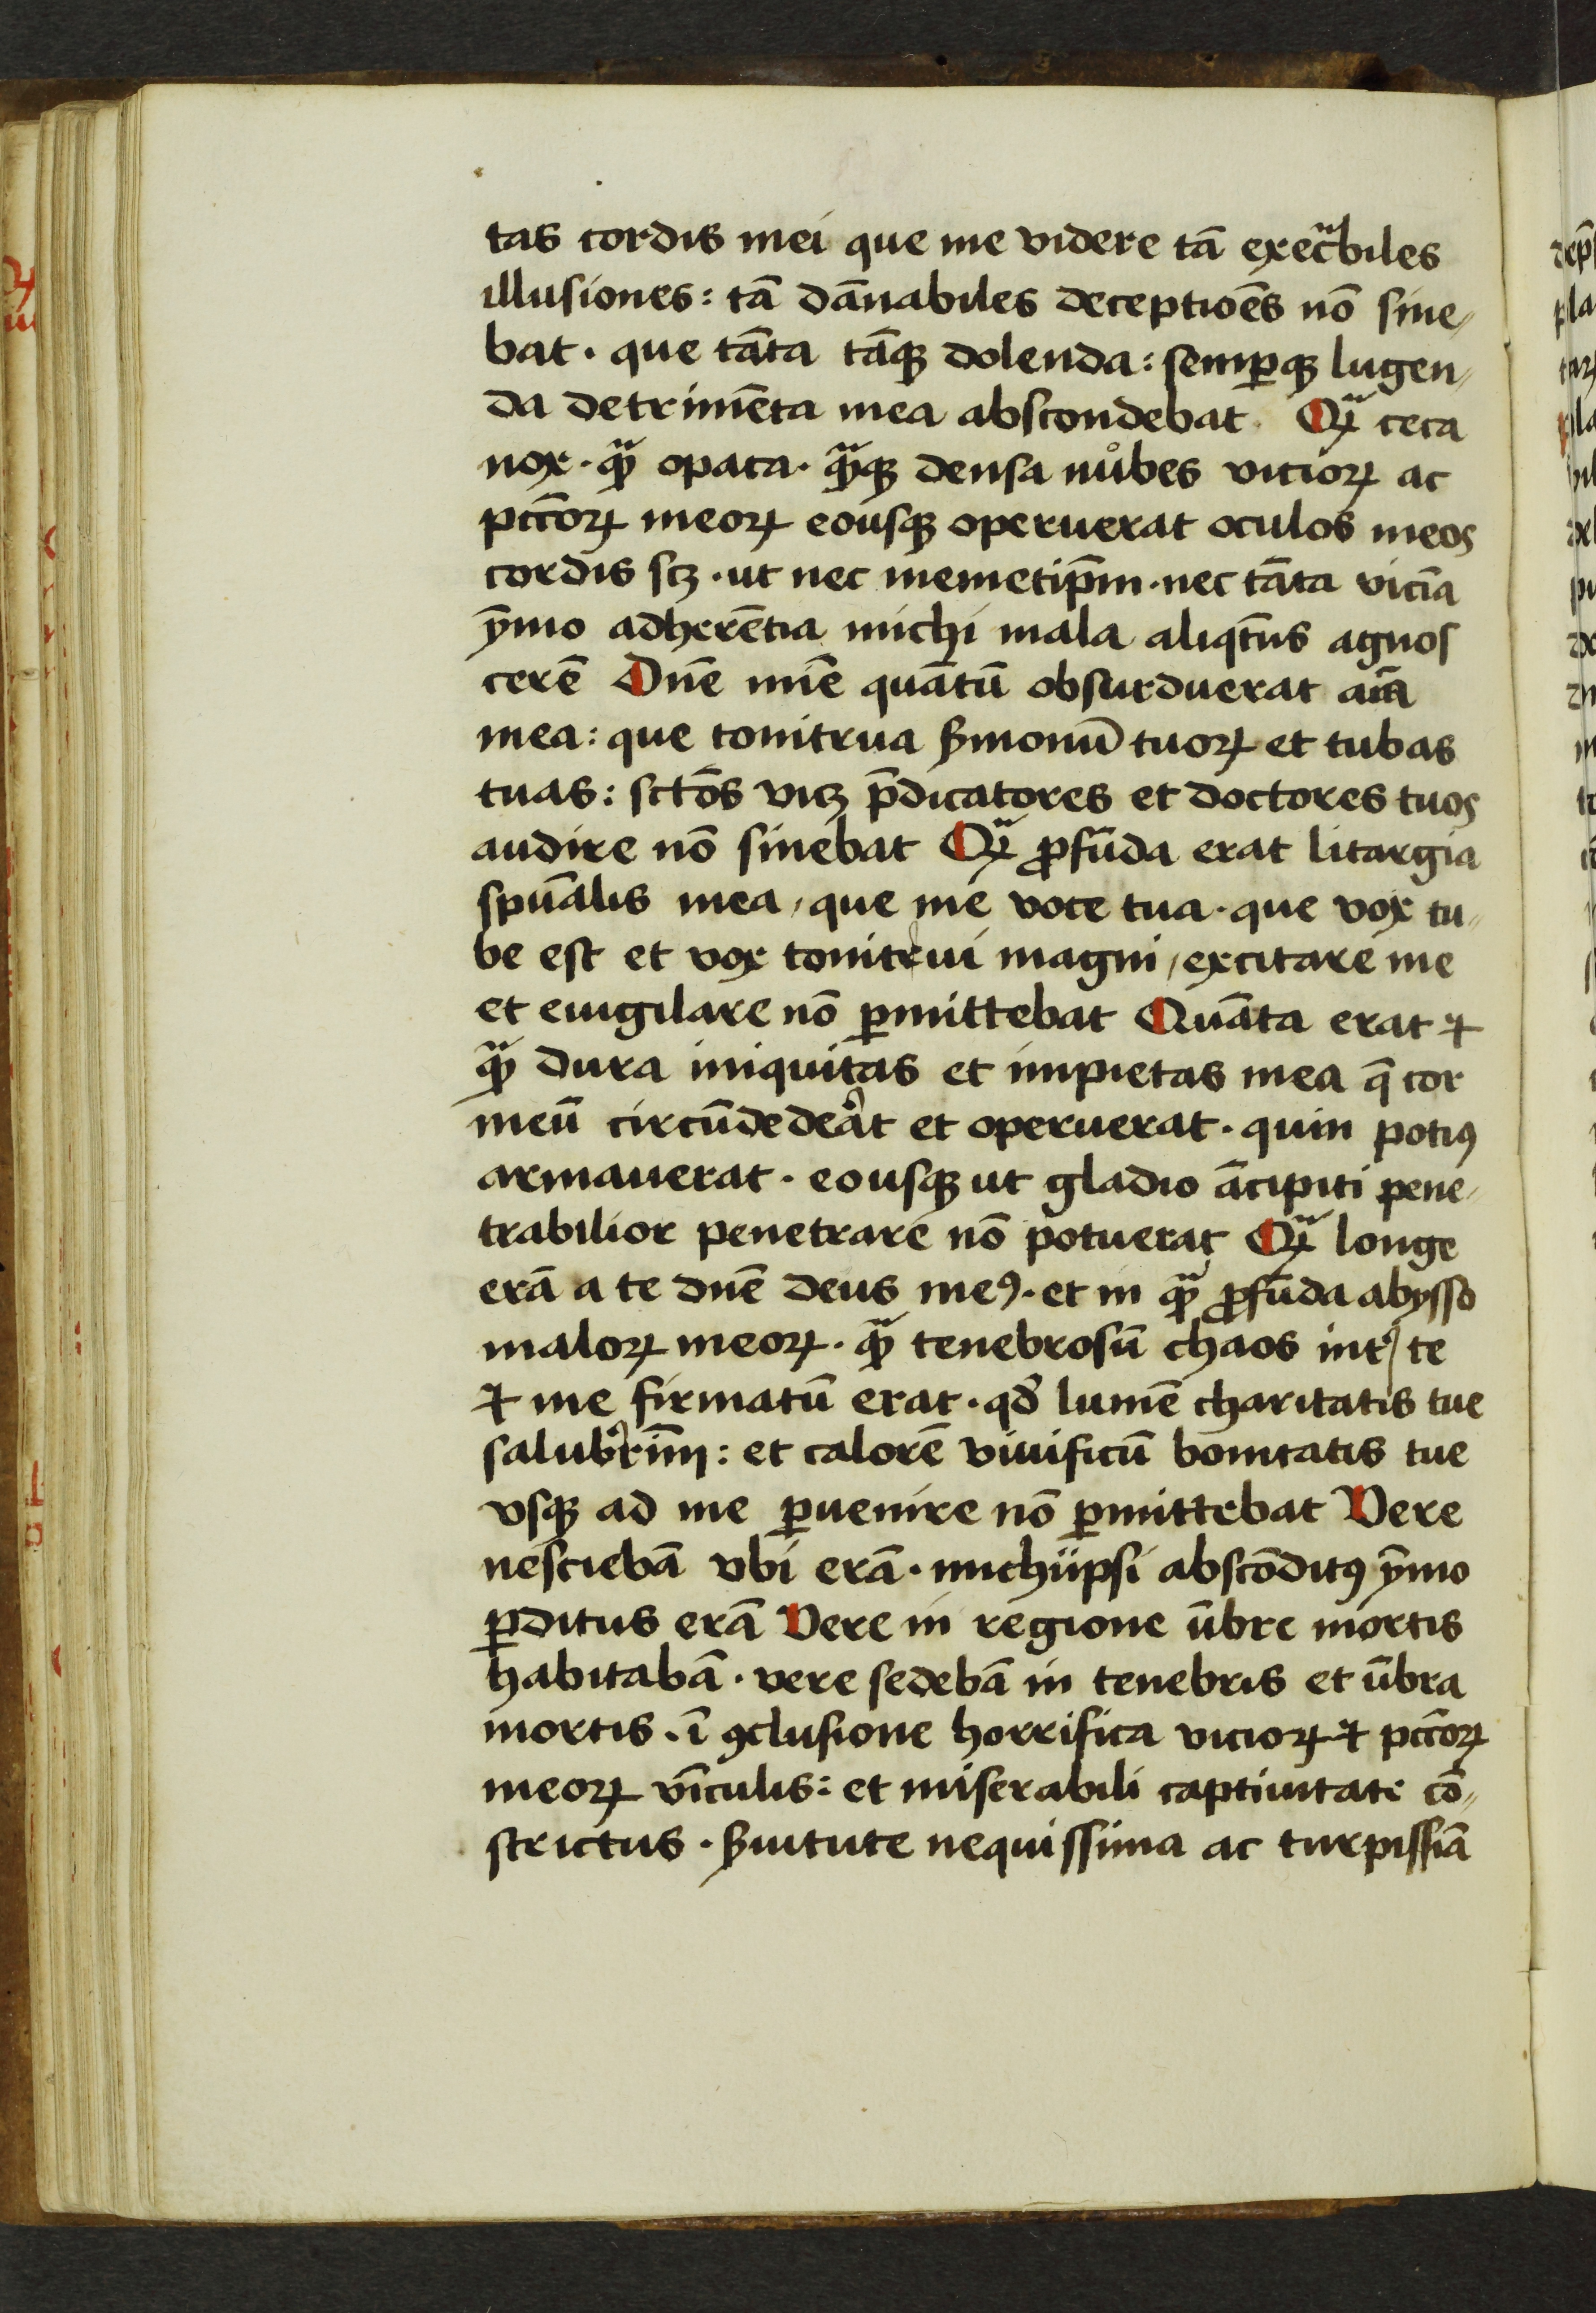 tas cordis mei que me videre tā execᷓbiles
illusiones: tā dānabiles deceptiōes nō sine⸗
bat · que tāta tāqꝫ dolenda: semꝑqꝫ lugen⸗
da detrimēta mea abscondebat Qᷓꝫ ceca
nox · qᷓꝫ opaca · qᷓꝫqꝫ densa nůbes vicioꝝ ac
pctc̄oꝝ meoꝝ eousqꝫ operuerat oculos meos
cordis scꝫ · ut nec memetip̄m · nec tāta vicia
ȳmo adherētia michi mala aliqt̄us agnos
cerē Dn̄e mīe quātū obsurduerat aīa
mea: que tonitrua ẜmonū tuoꝝ et tubas
tuas: sctōs vicꝫ p̄dicatores et doctores tuos
audire nō sinebat Qᷓꝫ ꝓfūda erat litargia
spūalis mea, que me voce tua · que vox tu⸗
be est et vox tonitrui magni, excitare me
et euigilare nō ꝑmittebat Quāta erat ⁊
qᷓꝫ dura iniquitas et impietas mea q̄ cor
meū circūdedeat et operuerat · quin potiꝰ
armauerat · eousqꝫ ut gladio ācipiti pene⸗
trabilior penetrare nō potuerat Qᷓꝫ longe
erā a te dn̄e deus meꝰ · et in qᷓꝫ ꝓfūda abysso
maloꝝ meoꝝ · qᷓꝫ tenebrosū chaos int̉ te
⁊ me firmatū erat · qd̓ lumē charitatis tue
salub̓rīmi: et calorē viuificū bonitatis tue
vsqꝫ ad me ꝑuenire nō ꝑmittebat Vere
nesciebā vbi erā · michiipsi abscōditꝰ ȳmo
ꝑditus erā Vere in regione ūbre mortis
habitabā · vere sedebā in tenebris et ūbra
mortis · ī ꝯclusione horrifica vicioꝝ ⁊ pctc̄oꝝ
meoꝝ vīculis: et miserabili captiuitate cō⸗
strictus · ẜuitute nequissima ac turpissīa